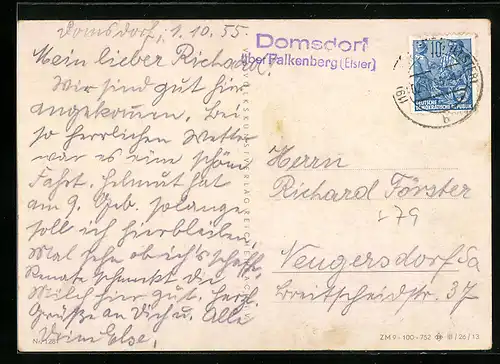 Domsdorf, 1.10.55.
Mein lieber Richard!
Wir sind gut hier
angekommen. Bei
so herrlichen Wetter
war es eine schöne
Fahrt. Helmut hat
am 9. Geb. solange
soll ich hierbleiben.
Mal sehn ob ich's schaffe.
Renate schmeckt die
Milch hier gut. Herzl.
Grüße an Dich u. Alle
Deine Else.
Domsdorf
über Falkenberg (Elster)
DEUTSCHE
DEMOKRATISCHE REPUBLIK
Herrn
Richard Förster
Neugersdorf Sa
Breitscheidstr. 37
ZM 9 - 100 - 752 III / 26 / 13